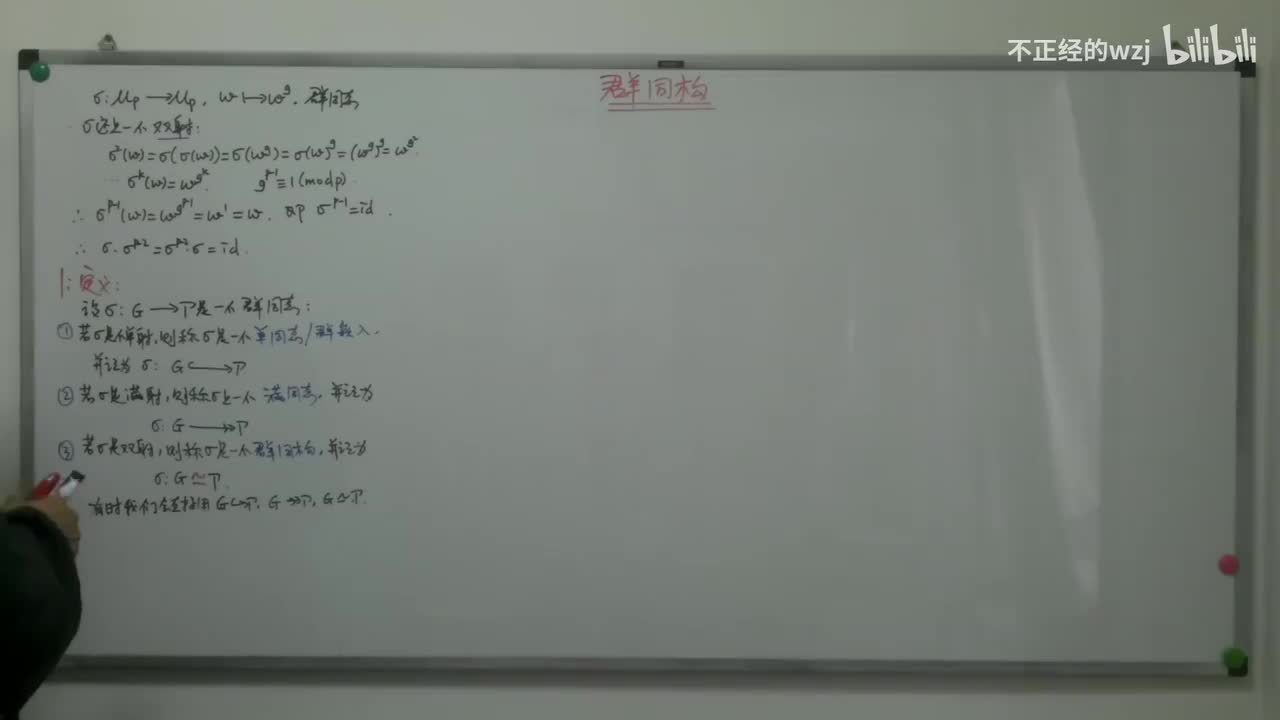 不正经的wzj bilibili
群同构
σ: μp → μp, ω ↦ ω^g, 群同态
σ还是一个双射:
σ²(ω)=σ(σ(ω))=σ(ω^g)=σ(ω)^g=(ω^g)^g=ω^{g²}
… σ^k(ω)=ω^{g^k}. g^{p-1}≡1(mod p).
∴ σ^{p-1}(ω)=ω^{g^{p-1}}=ω^1=ω. 即 σ^{p-1}=id.
∴ σ·σ^{p-2}=σ^{p-2}·σ=id.
1: 定义:
设σ: G → Γ是一个群同态:
① 若σ是单射,则称σ是一个单同态/群嵌入.
并记为 σ: G ↪ Γ
② 若σ是满射,则称σ是一个满同态,并记为
σ: G ↠ Γ
③ 若σ是双射,则称σ是一个群同构,并记为
σ: G ≃ Γ.
有时我们会直接用 G↪Γ, G↠Γ, G≃Γ.